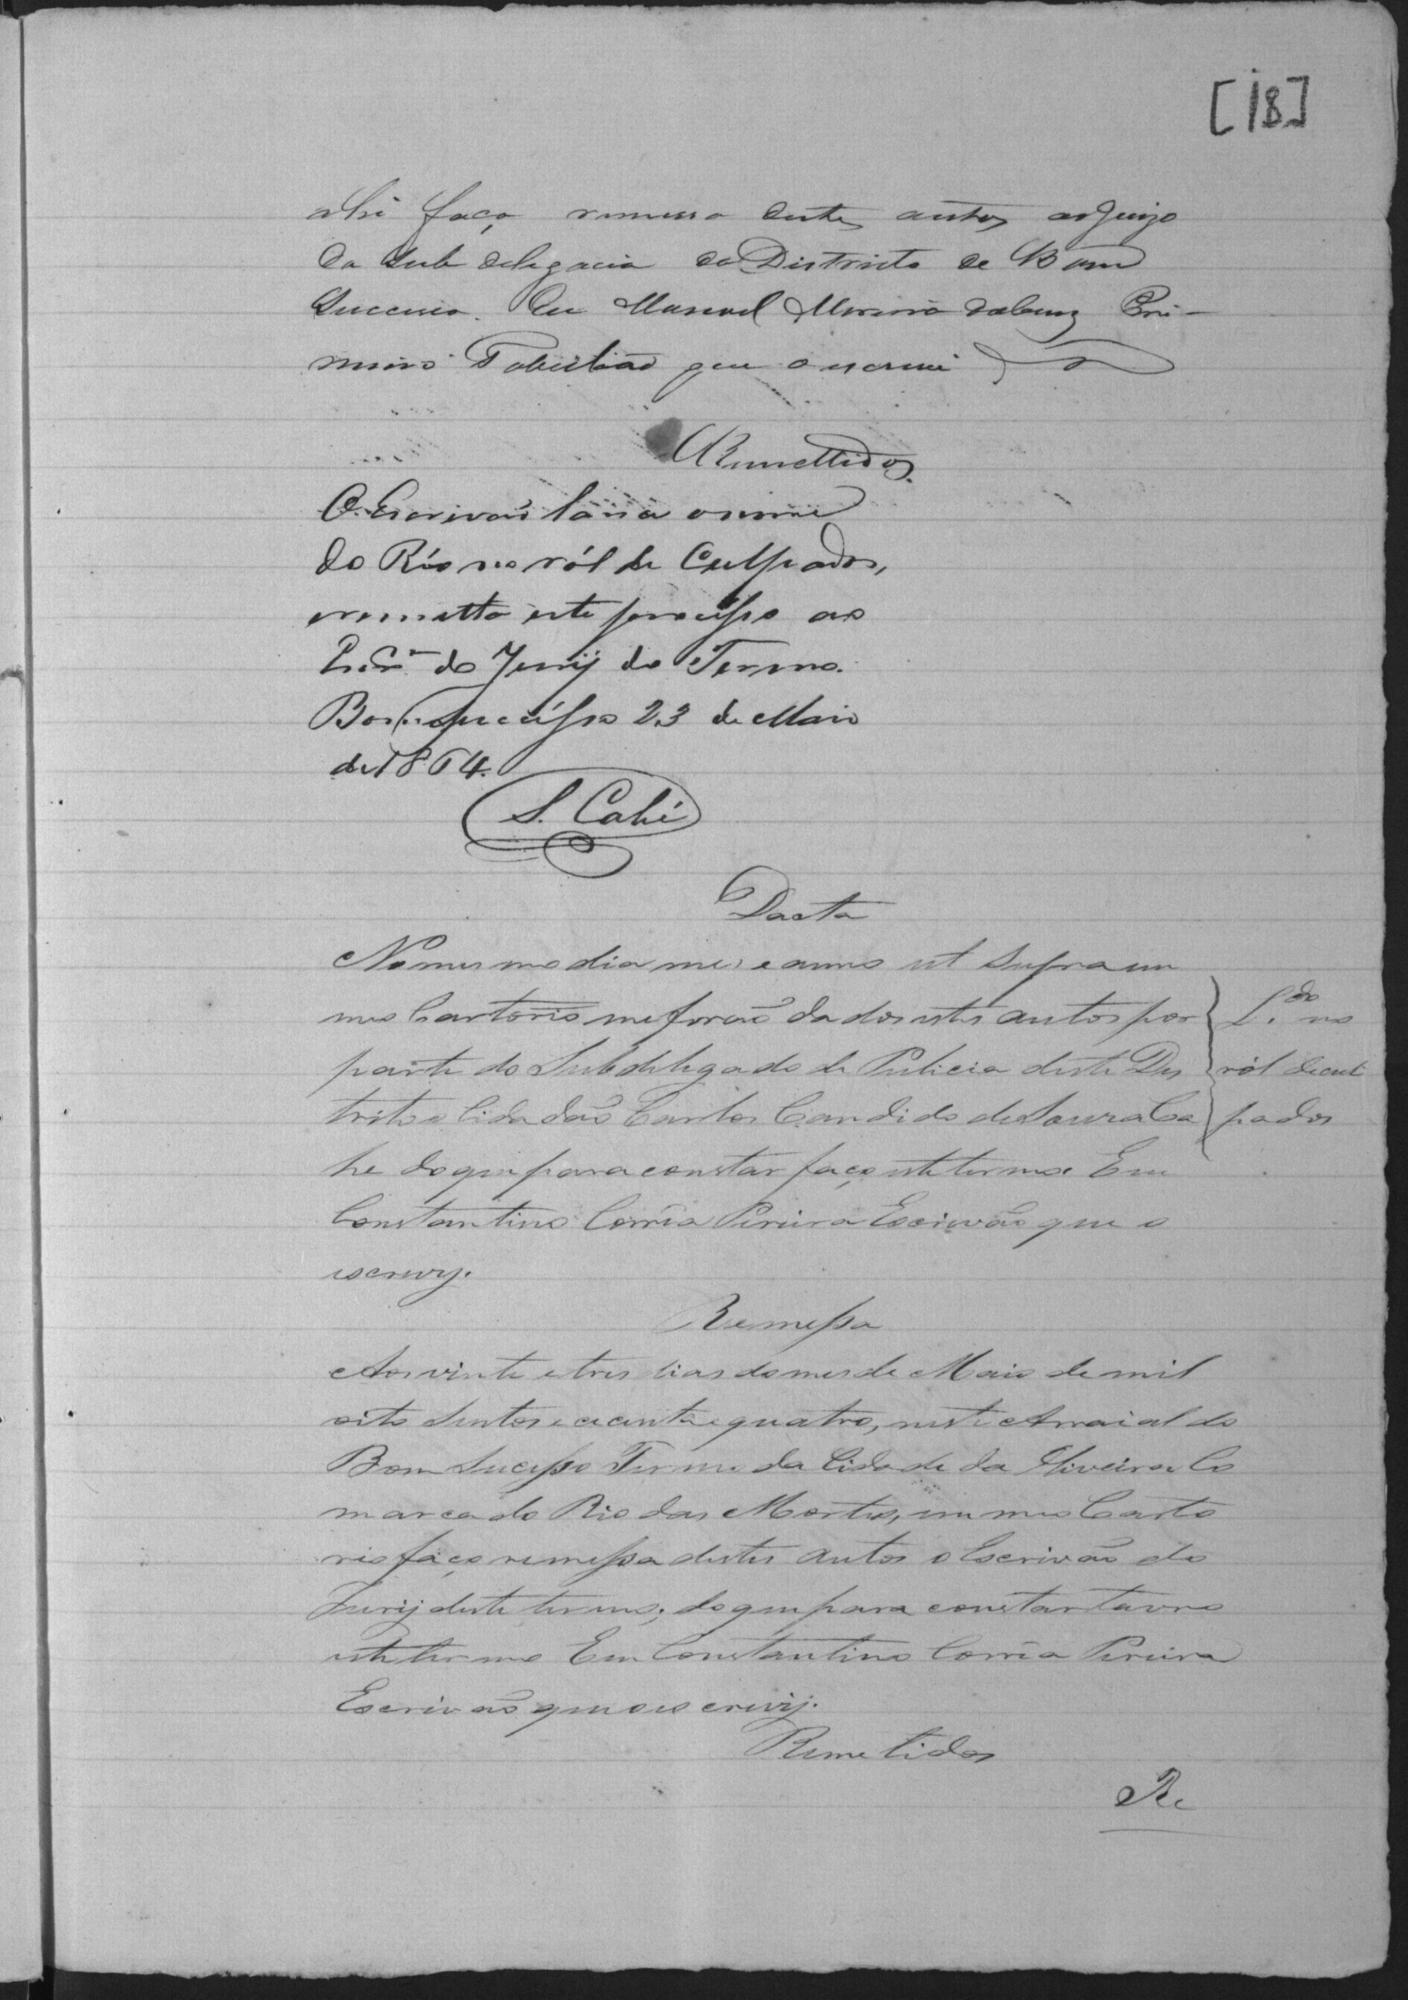 [18]
ahi faço remessa destes autos ao Juizo
da Subdelegacia do Districto de Bom
Successo. Eu Manoel Moreira da Cruz Pri-
meiro Tabellião que o escrevi
Remettidos.
O Escrivaõ lança o nome
do Réo no ról de Culpados,
e remetta este processo ao
do Jury do Termo.
Bom Sucésso 23 de Maio
de 1864.
S. Cahé
Dacta
No mesmo dia mes e anno ut supra em
meo Cartorio me foraõ dados estes autos por
parte do Subdelegado de Pulicia deste Des
trito o Cidadaõ Carlos Candido de Souza Ca
he do que para constar faço este termo Eu
Constantino Corrêa Pereira Escrivaõ que o
escrevy.
L.do no
ról de cul
pados
Remessa
Aos vinte e tres dias do mes de Maio de mil
oito sentos e cecenta e quatro, neste Arraial do
Bom Sucesso Termo da Cidade da Oliveira Co
marca do Rio das Mortes, em meo Carto
rio faço remessa destes autos o Escrivaõ do
Jurij deste termo; do que para constar lavro
este termo Eu Constantino Corrêa Pereira
Escrivaõ que o escrevij.
Remetidos
Re